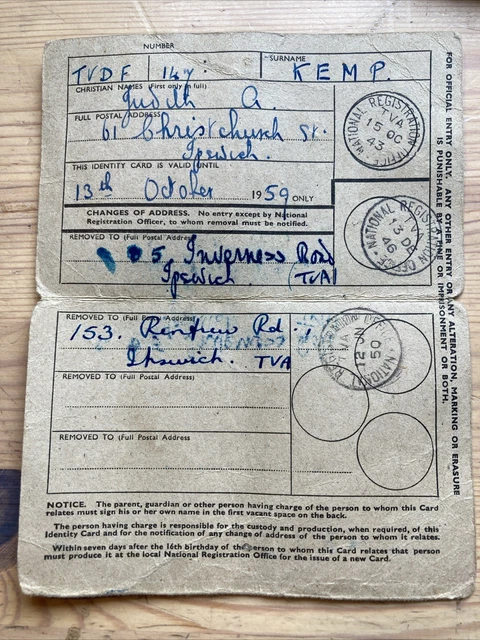 NUMBER
SURNAME
TVDF 147.
KEMP.
CHRISTIAN NAMES (First only in full)
Judith A.
FULL POSTAL ADDRESS
61 Christchurch St.
Ipswich.
THIS IDENTITY CARD IS VALID UNTIL
13th October 1959 ONLY
CHANGES OF ADDRESS. No entry except by National
Registration Officer, to whom removal must be notified.
REMOVED TO (Full Postal Address)
5, Inverness Road
Ipswich. (TVA)
REMOVED TO (Full Postal Address)
153. Renfrew Rd
Ipswich. TVA
REMOVED TO (Full Postal Address)
REMOVED TO (Full Postal Address)
NATIONAL REGISTRATION OFFICE
TVA
15 OC
43
NATIONAL REGISTRATION OFFICE
13 DE
46
NATIONAL
TVA
12 JN
50
FOR OFFICIAL ENTRY ONLY. ANY OTHER ENTRY OR ANY ALTERATION, MARKING OR ERASURE
IS PUNISHABLE BY A FINE OR IMPRISONMENT OR BOTH.
NOTICE. The parent, guardian or other person having charge of the person to whom this Card
relates must sign his or her own name in the first vacant space on the back.
The person having charge is responsible for the custody and production, when required, of this
Identity Card and for the notification of any change of address of the person to whom it relates.
Within seven days after the 16th birthday of the person to whom this Card relates that person
must produce it at the local National Registration Office for the issue of a new Card.